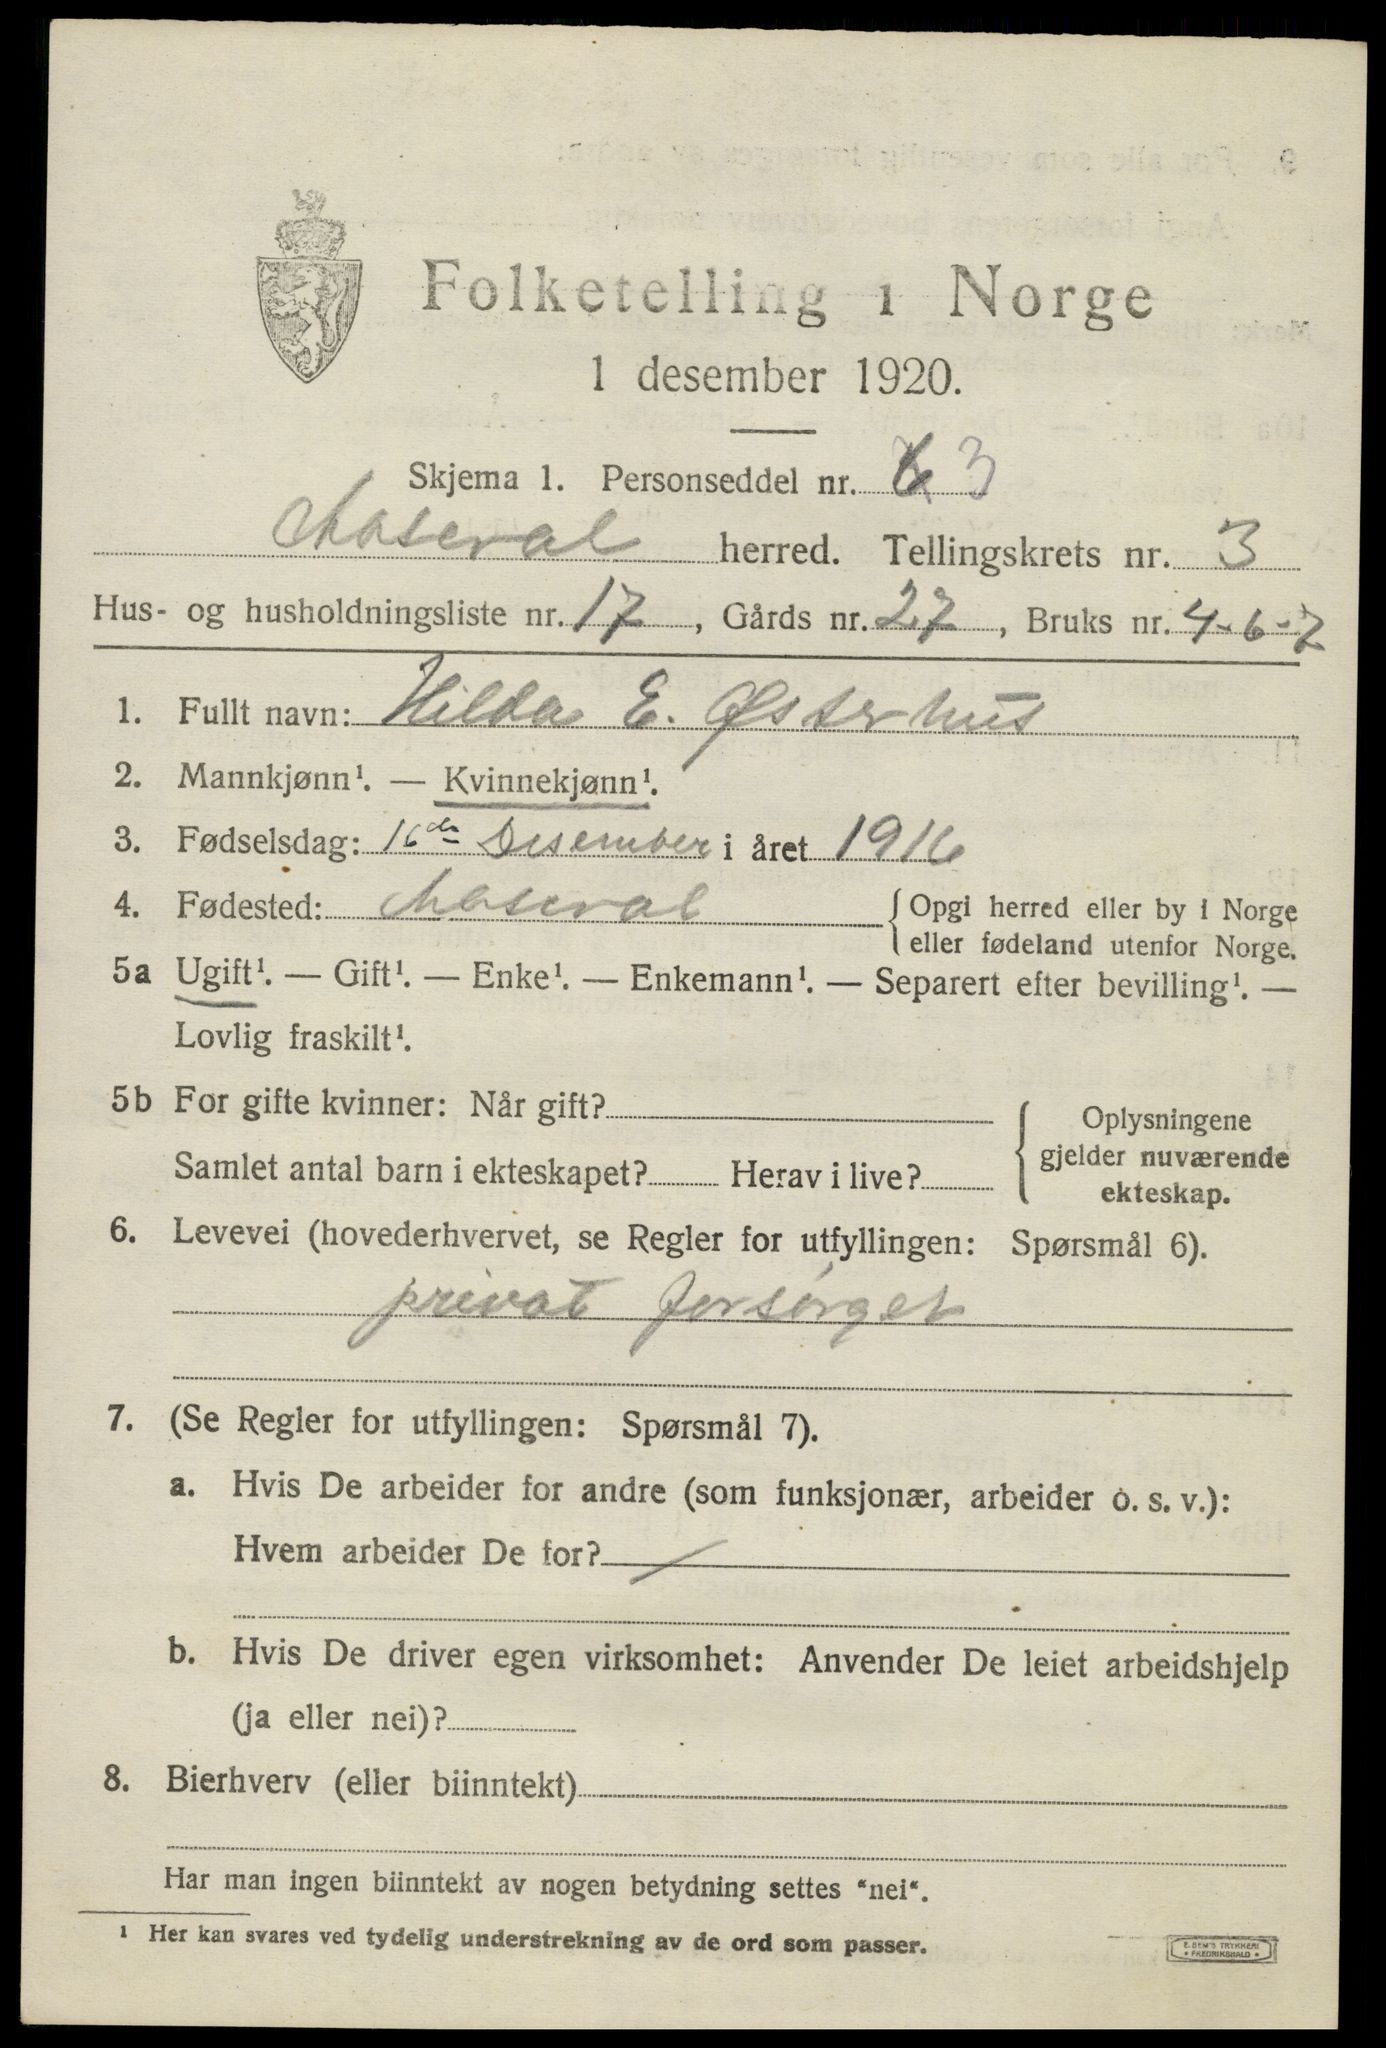 Folketelling i Norge
1 desember 1920.
Skjema 1. Personseddel nr. 3
herred. Tellingskrets nr. 3
Hus- og husholdningsliste nr. 17, Gårds nr. 27, Bruks nr. 4-6-7
1. Fullt navn: Hilda E. Østerhus
2. Mannkjønn¹. — Kvinnekjønn¹.
3. Fødselsdag: 16de Desember i året 1916
4. Fødested: {Opgi herred eller by i Norge
eller fødeland utenfor Norge.
5a Ugift¹. — Gift¹. — Enke¹. — Enkemann¹. — Separert efter bevilling¹. —
Lovlig fraskilt¹.
5b For gifte kvinner: Når gift?
Samlet antal barn i ekteskapet? Herav i live?
{Oplysningene
gjelder nuværende
ekteskap.
6. Levevei (hovederhvervet, se Regler for utfyllingen: Spørsmål 6).
privat forsørget
7. (Se Regler for utfyllingen: Spørsmål 7).
a. Hvis De arbeider for andre (som funksjonær, arbeider o. s. v.):
Hvem arbeider De for? /
b. Hvis De driver egen virksomhet: Anvender De leiet arbeidshjelp
(ja eller nei)?
8. Bierhverv (eller biinntekt)
Har man ingen biinntekt av nogen betydning settes "nei".
¹ Her kan svares ved tydelig understrekning av de ord som passer.
E. SEM'S TRYKKERI
• FREDRIKSHALD •